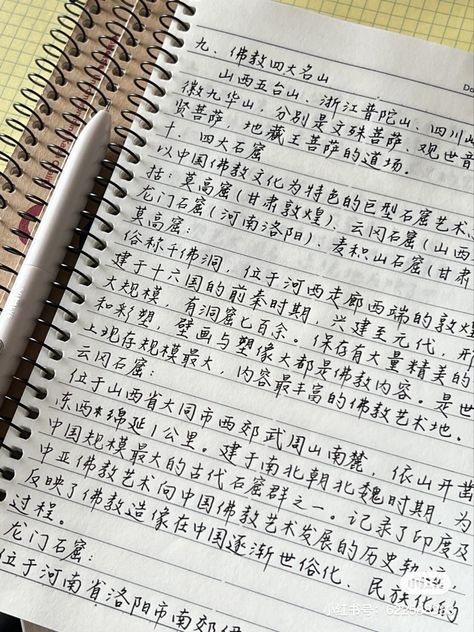 九、佛教四大名山
山西五台山、浙江普陀山、四川
徽九华山，分别是文殊菩萨、观世音
贤菩萨、地藏王菩萨的道场。
十、四大石窟
以中国佛教文化为特色的巨型石窟艺术
括：莫高窟（甘肃敦煌）、云冈石窟（山西
龙门石窟（河南洛阳）、麦积山石窟（甘肃
莫高窟：
俗称千佛洞，位于河西走廊西端的敦煌
建于十六国的前秦时期，兴建至元代，
大规模，有洞窟七百余。保存有大量精美的
和彩塑，壁画与塑像大都是佛教内容。是世
上现存规模最大，内容最丰富的佛教艺术地。
云冈石窟：
位于山西省大同市西郊武周山南麓，依山开凿
东西绵延1公里。建于南北朝北魏时期，为
中国规模最大的古代石窟群之一。记录了印度及
中亚佛教艺术向中国佛教艺术发展的历史轨
反映了佛教造像在中国逐渐世俗化、民族化的
过程。
龙门石窟：
位于河南省洛阳市南郊伊
小红书
小红书号：